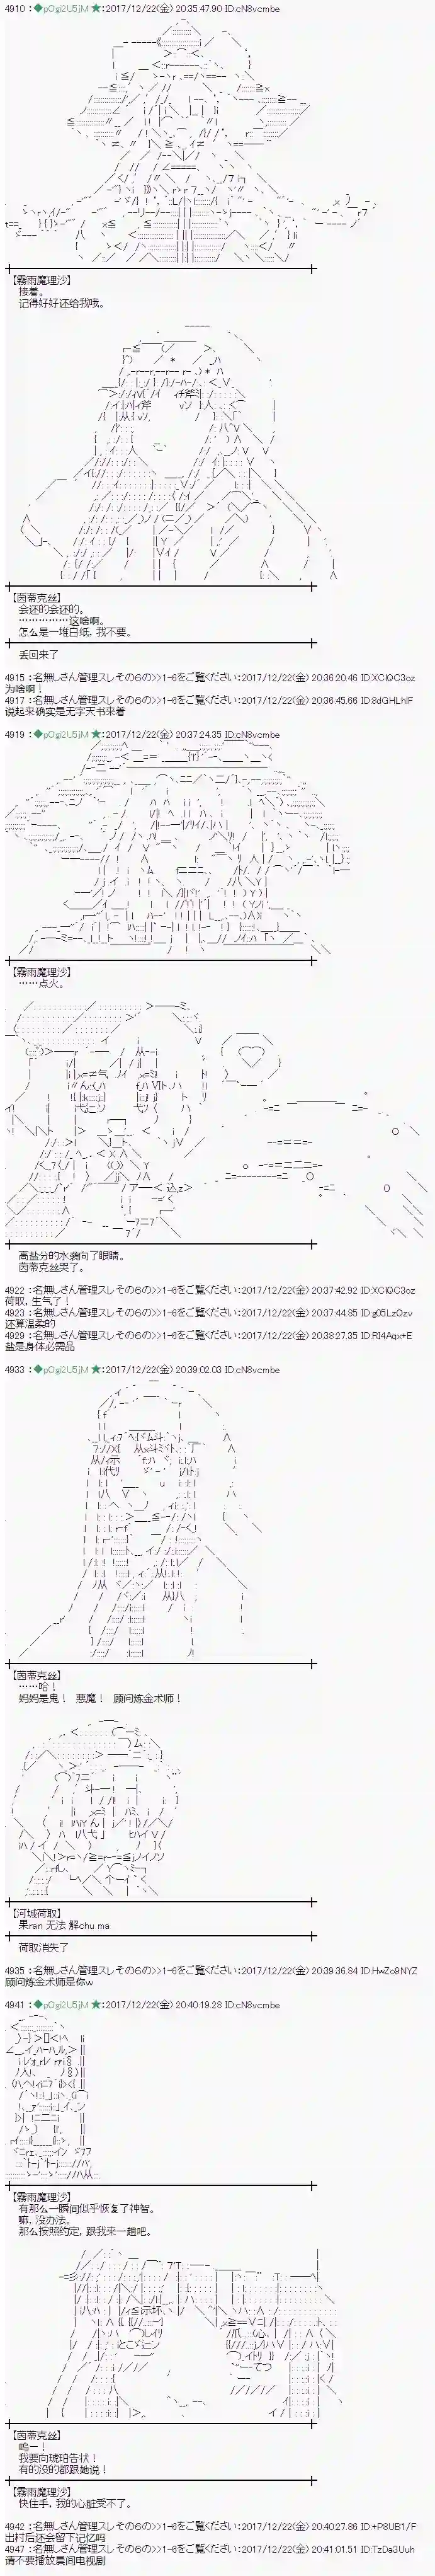 4910 ：◆pOgi2U5jM ★：2017/12/22(金) 20:35:47.90 ID:cN8vcmbe
【霧雨魔理沙】
接着。
记得好好还给我哦。
【茵蒂克丝】
会还的会还的。
……………这啥啊。
怎么是一堆白纸，我不要。
丢回来了
4915 ：名無しさん管理スレその６の>>1-6をご覧ください：2017/12/22(金) 20:36:20.46 ID:XClOC3oz
为啥啊！
4917 ：名無しさん管理スレその６の>>1-6をご覧ください：2017/12/22(金) 20:36:45.66 ID:8dGHLhIF
说起来确实是无字天书来着
4919 ：◆pOgi2U5jM ★：2017/12/22(金) 20:37:24.35 ID:cN8vcmbe
【霧雨魔理沙】
……点火。
高盐分的水袭向了眼睛。
茵蒂克丝哭了。
4922 ：名無しさん管理スレその６の>>1-6をご覧ください：2017/12/22(金) 20:37:42.92 ID:XClOC3oz
荷取，生气了！
4923 ：名無しさん管理スレその６の>>1-6をご覧ください：2017/12/22(金) 20:37:44.85 ID:g05LzQzv
还算温柔的
4929 ：名無しさん管理スレその６の>>1-6をご覧ください：2017/12/22(金) 20:38:27.35 ID:RI4Aqx+E
盐是身体必需品
4933 ：◆pOgi2U5jM ★：2017/12/22(金) 20:39:02.03 ID:cN8vcmbe
【茵蒂克丝】
……哈！
妈妈是鬼！ 恶魔！ 顾问炼金术师！
【河城荷取】
果ran 无法 解chu ma
荷取消失了
4935 ：名無しさん管理スレその６の>>1-6をご覧ください：2017/12/22(金) 20:39:36.84 ID:HwZo9NYZ
顾问炼金术师是你w
4941 ：◆pOgi2U5jM ★：2017/12/22(金) 20:40:19.28 ID:cN8vcmbe
【霧雨魔理沙】
有那么一瞬间似乎恢复了神智。
嘛，没办法。
那么按照约定，跟我来一趟吧。
【茵蒂克丝】
呜ー！
我要向琥珀告状！
有的没的都跟她说！
【霧雨魔理沙】
快住手，我的心脏受不了。
4942 ：名無しさん管理スレその６の>>1-6をご覧ください：2017/12/22(金) 20:40:27.86 ID:+P8UB1/F
出村后还会留下记忆吗
4947 ：名無しさん管理スレその６の>>1-6をご覧ください：2017/12/22(金) 20:41:01.51 ID:TzDa3Uuh
请不要播放晨间电视剧